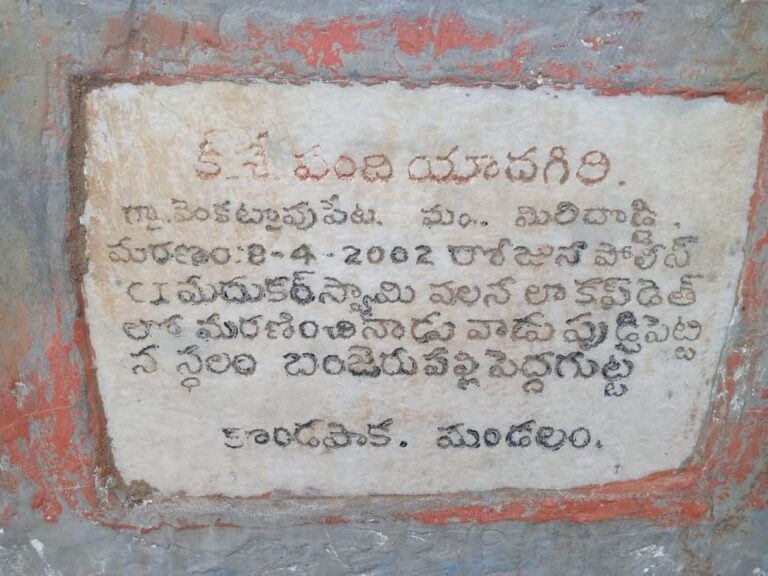 కీ.శే. పంది యాదగిరి.
గ్రా.వెంకట్రావుపేట. మం.. మిరిదొడ్డి.
మరణం:8-4-2002 రోజున పోలీస్
CI మదుకర్‌స్వామి వలన లాకప్‌డెత్
లో మరణించినాడు వాడు పుడ్డిపెట్టి
న స్థలం బంజెరుపల్లి పెద్దగుట్ట
కొండపాక. మండలం.